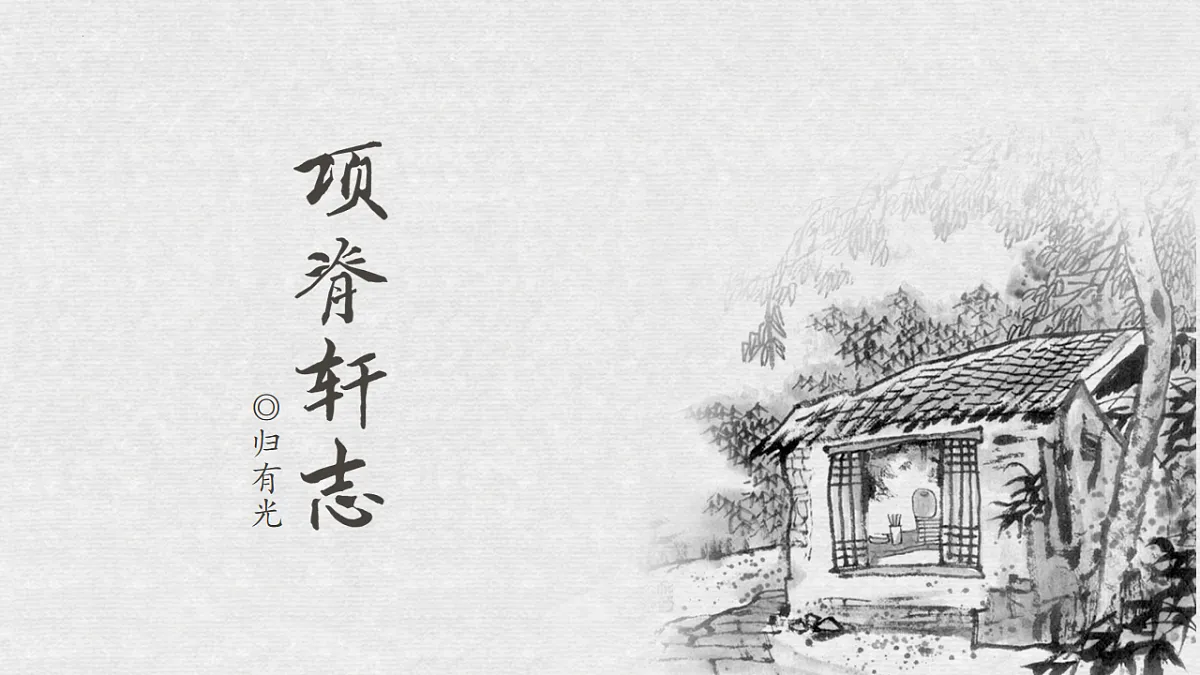 项脊轩志
◎归有光